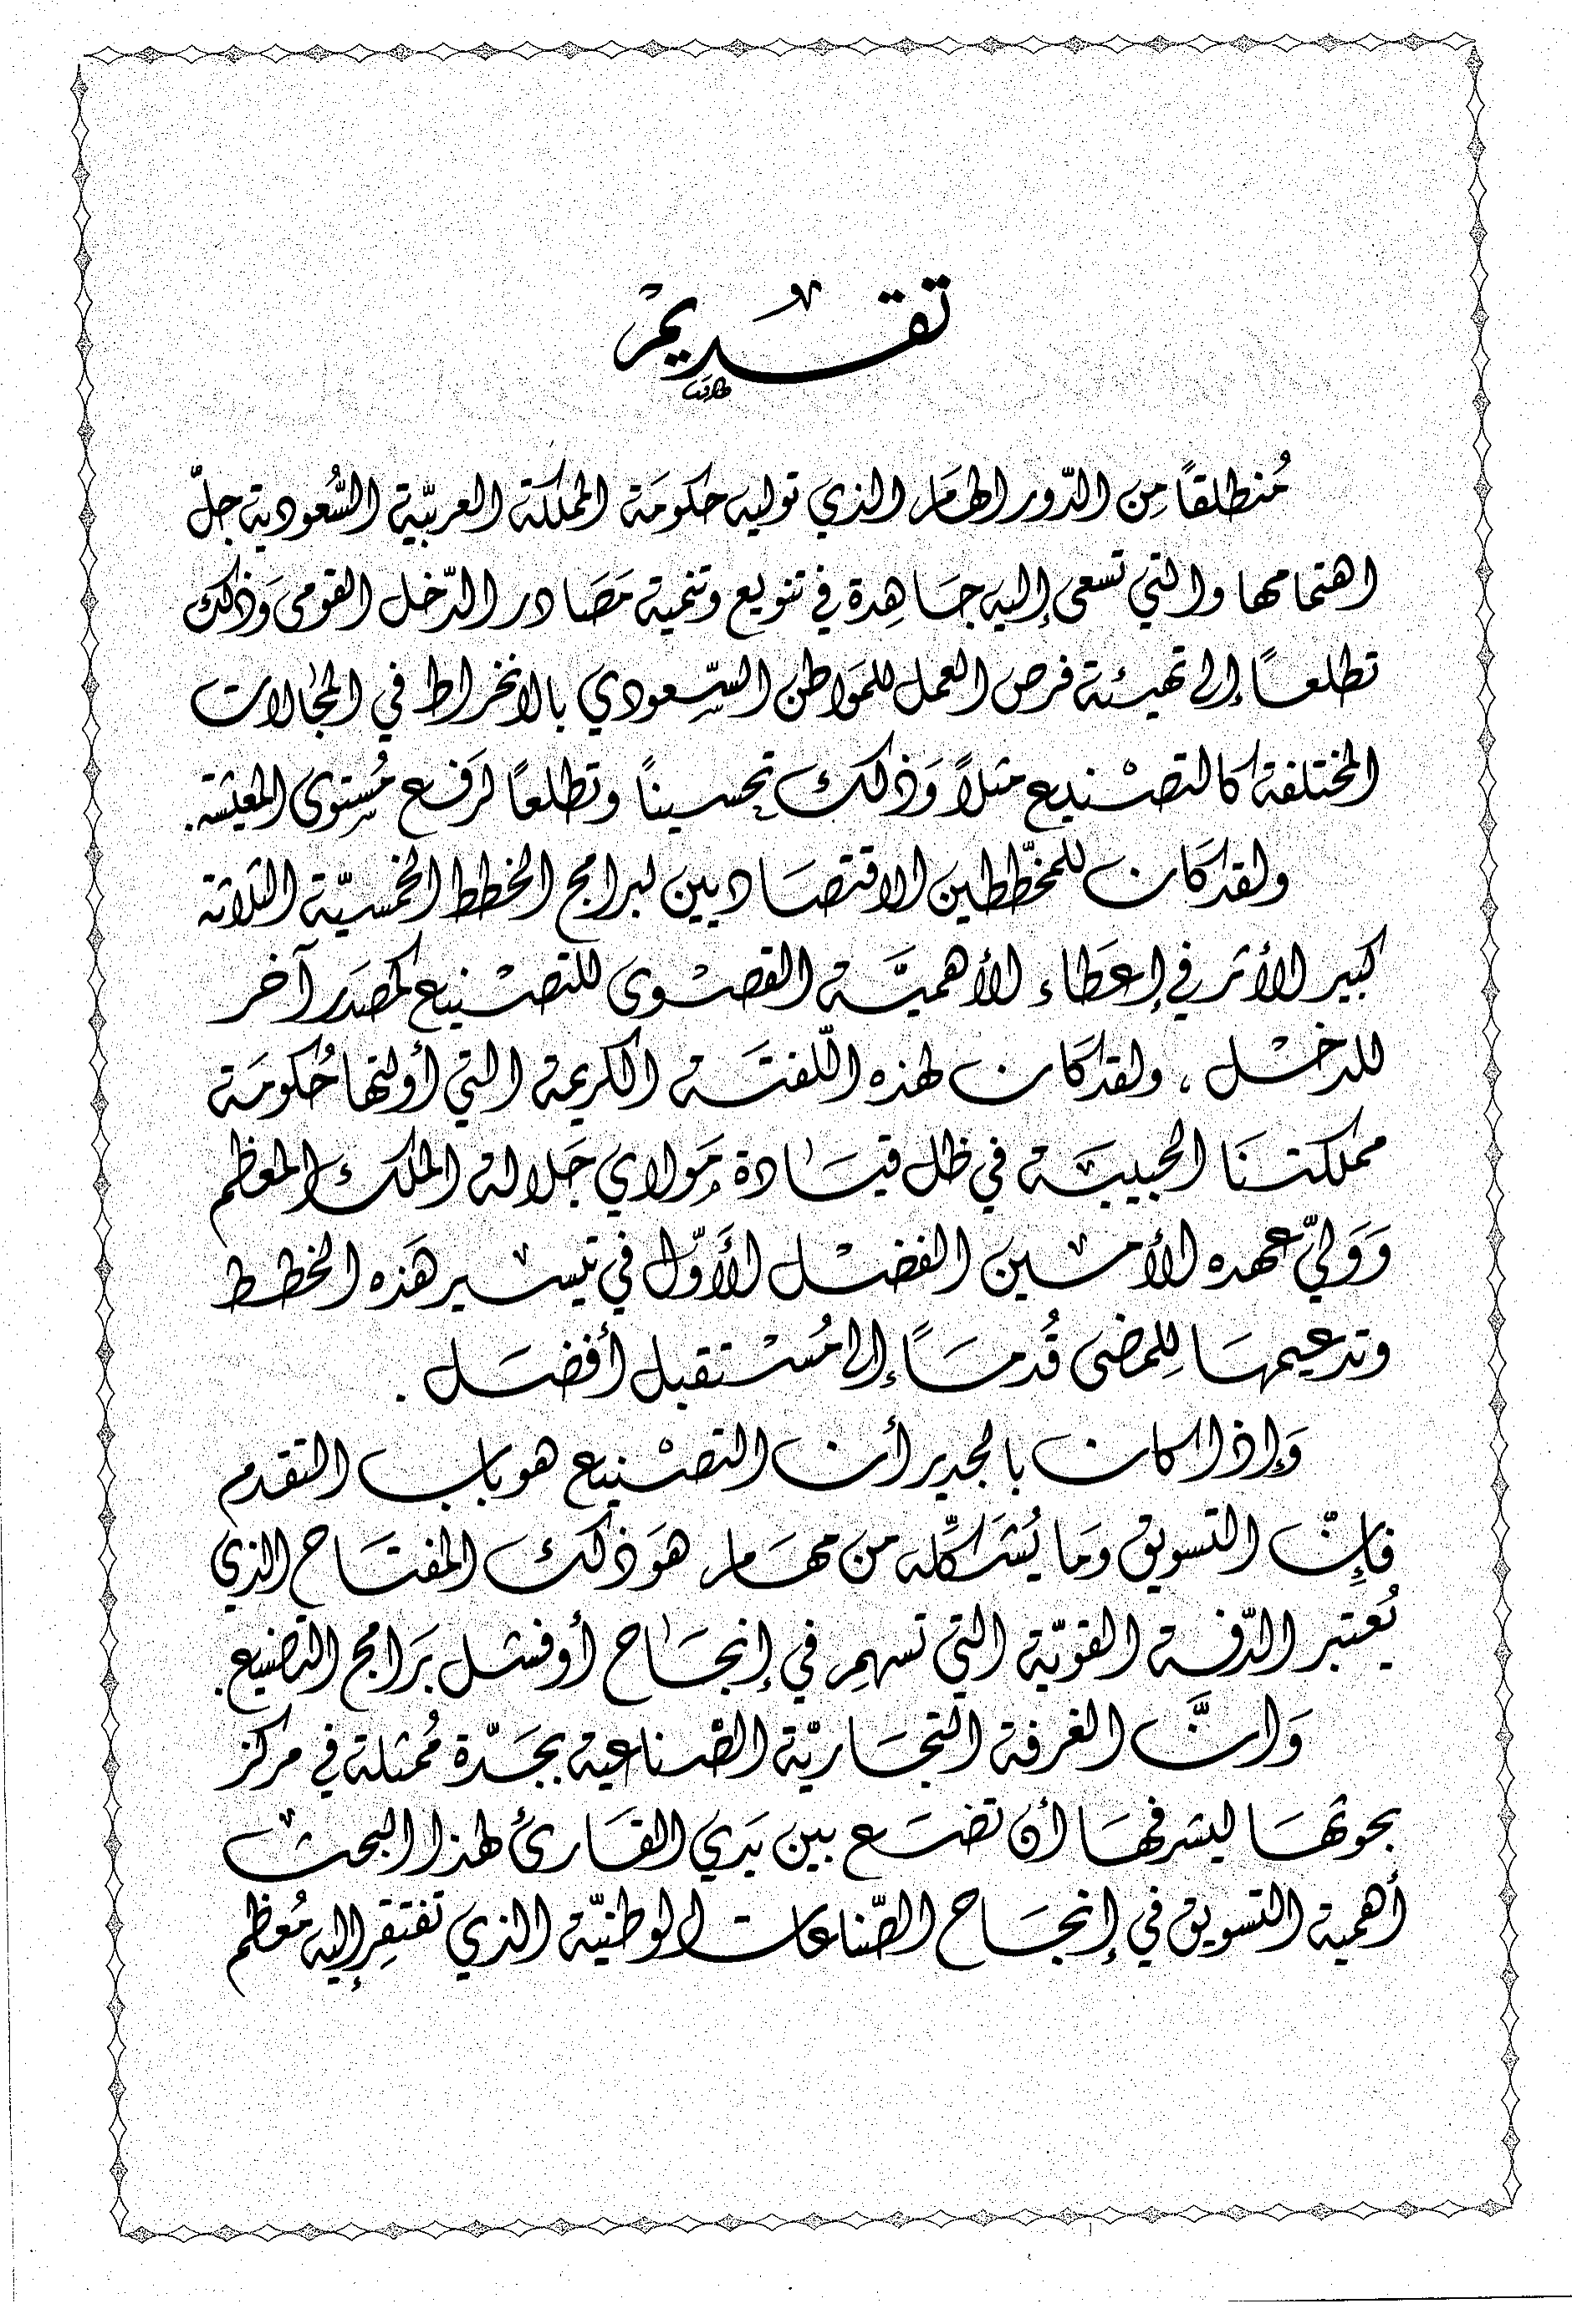 تقديم
مُنطلقاً مِن الدّور الهَام الذي توليه حكومَة المملكة العربيّة السُّعودية جلّ
اهتمامها والتي تسعى إليه جَاهِدة في تنويع وتنمية مَصَادر الدّخل القومى وَذلك
تطلعاً إلى تهيئة فرص العمل للمَواطن السِّعودي بالانخراط في المجالات
المختلفة كالتصْنيع مثلاً وَذلك تحسيناً وتطلعاً لرَفع مُستوى المعيشة.
ولقد كَان للمخطّطين الاقتصَاديين لبرامج الخطط الخمسيّة الثلاثة
كبير الأثر في إعطَاء الأهميَّة القصْوى للتصْنيع كمصدَر آخر
للدخْل ، ولقد كَان لهذه اللّفتَة الكريمة التي أولتها حُكومَة
مملكتنَا الحبيبَة في ظل قيَادة مَولاي جَلالة الملك المعظم
وَوَليّ عهده الأمْين الفضْل الأَوّل في تيسْير هَذه الخطط
وتدعيمهَا لِلمضى قُدمَاً إلى مُسْتقبل أفضَل .
وَإذا كان بالجدير أن التصْنيع هو باب التقدم
فإِنّ التسويق وَما يُشَكِّله من مهَام هَو ذلك المفتَاح الذي
يُعتبر الدّفة القويّة التي تسهم في إنجَاح أو فشل بَرَامج التصنيع.
وَانَّ الغرفة التجَاريّة الصّناعية بجَدّة مُمثلة في مركز
بحوثهَا ليشرفهَا أن تضَع بين يَدي القَارئ لهذا البحث
أهمية التسويق في إنجَاح الصّناعات الوطنيّة الذي تفتقِر إليه مُعظم